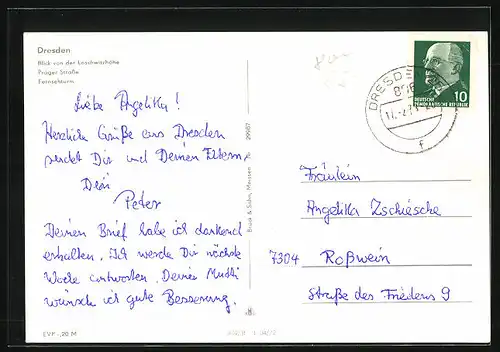 Dresden
Blick von der Loschwitzhöhe
Prager Straße
Fernsehturm
Liebe Angelika!
Herzliche Grüße aus Dresden
sendet Dir und Deinen Eltern
Dein
Peter
Deinen Brief habe ich dankend
erhalten. Ich werde Dir nächste
Woche antworten. Deiner Mutti
wünsche ich gute Besserung.
EVP -,20 M
Bruck & Sohn, Meissen
DRESDEN
f
DEUTSCHE
DEMOKRATISCHE REPUBLIK
10
Fräulein
Angelika Zschiesche
7304 Roßwein
Straße des Friedens 9